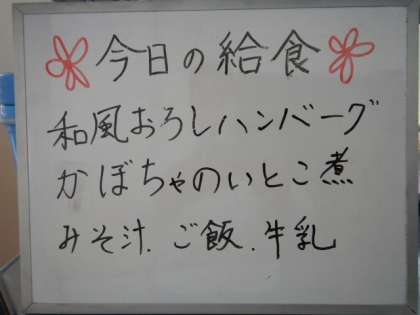 今日の給食
和風おろしハンバーグ
かぼちゃのいとこ煮
みそ汁.ご飯.牛乳